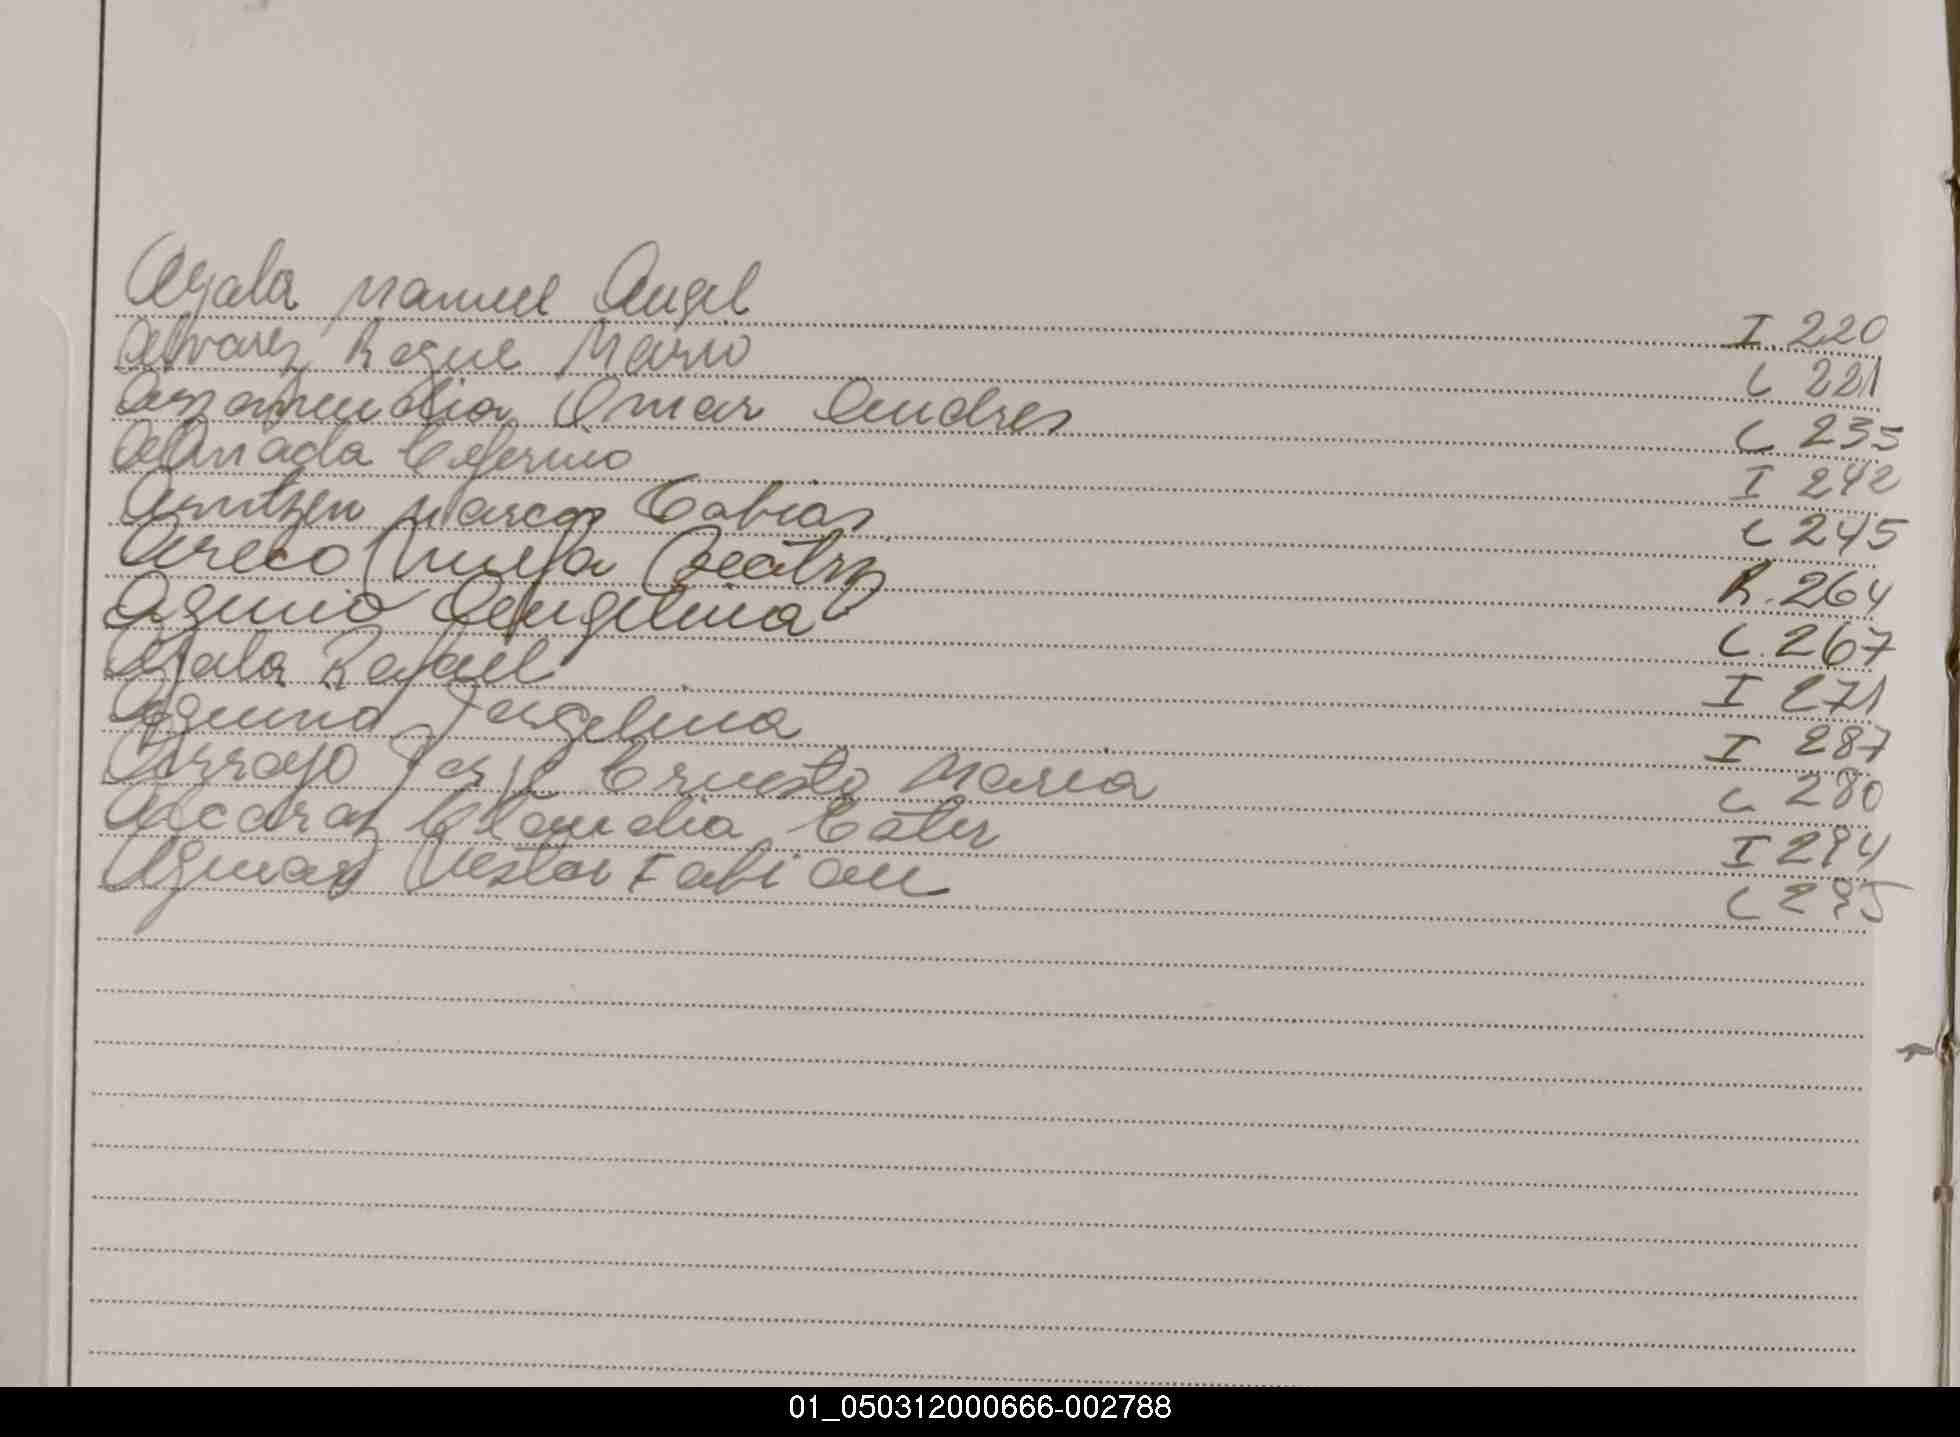 Ayala Manuel Angel I 220
Alvarez Roque Mario C 221
Arzamendia Omar Andres C 235
Almada Ceferino I 242
Arntzen Marcos Tobias C 245
Areco Mirta Beatriz R. 264
Aquino Angelina C. 267
Ayala Rafael I 271
Aquino Jorgelina I 287
Arroyo Jorge Ernesto Maria C 280
Alcaraz Claudia Ester I 294
Aguiar Nestor Fabian C 295
01_050312000666-002788